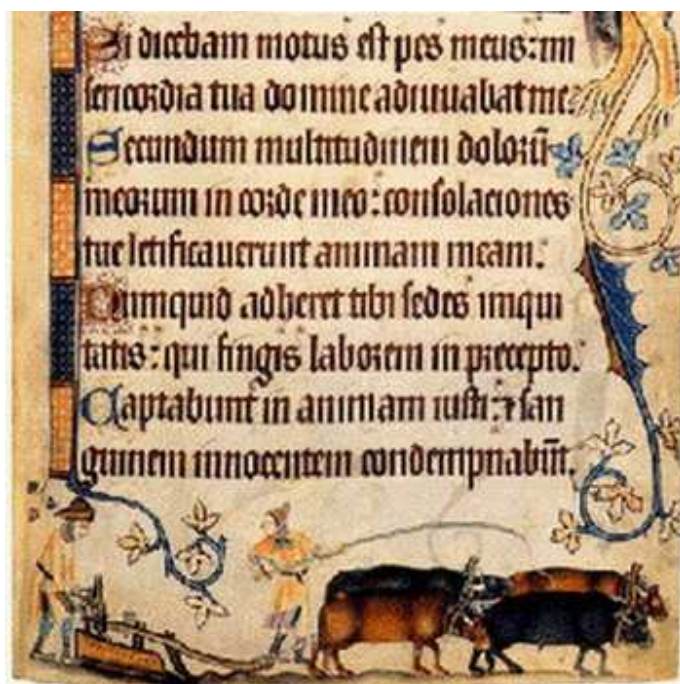 Si dicebam motus est pes meus: mi
sericordia tua domine adiuuabat me:
Secundum multitudinem dolorū
meorum in corde meo: consolaciones
tue letificauerunt animam meam:
Numquid adheret tibi sedes iniqui
tatis: qui fingis laborem in precepto.
Captabunt in animam iusti: ⁊ san
guinem innocentem condempnabūt.